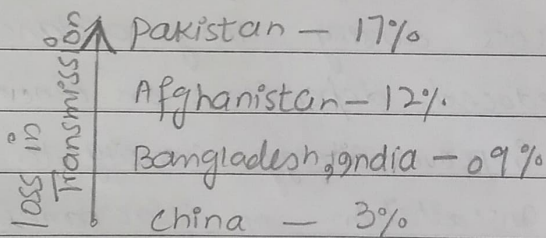 Loss in
Transmission
Pakistan — 17%
Afghanistan — 12%
Bangladesh, India — 09%
China — 3%